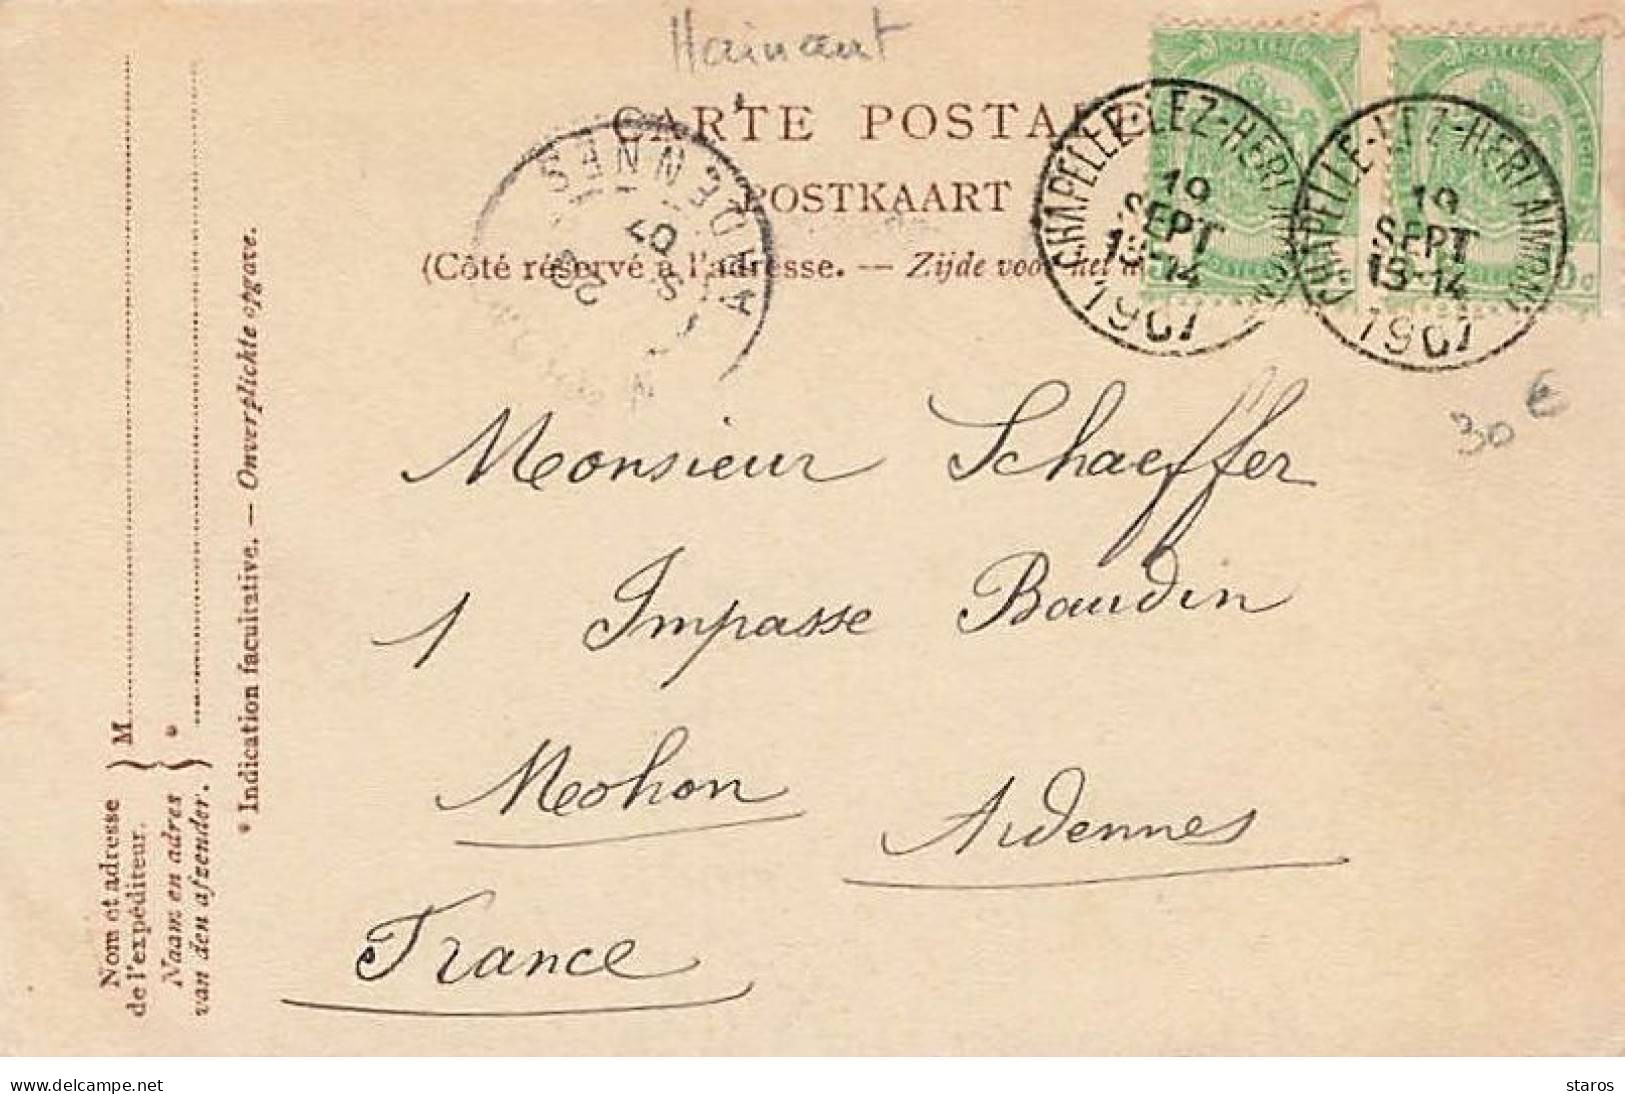 Hainaut
CARTE POSTALE
POSTKAART
(Côté réservé à l'adresse. — Zijde voor het
CHAPELLE-LEZ-HERLAIMONT
19
SEPT
13-14
1907
CHAPELLE-LEZ-HERLAIMONT
19
SEPT
13-14
1907
ARDENNES
20
07
30 €
Monsieur Schaeffer
1 Impasse Baudin
Mohon Ardennes
France
Nom et adresse
de l'expéditeur.
} M
Naam en adres
van den afzender.
} *
* Indication facultative. — Onverplichte opgave.
www.delcampe.net
staros